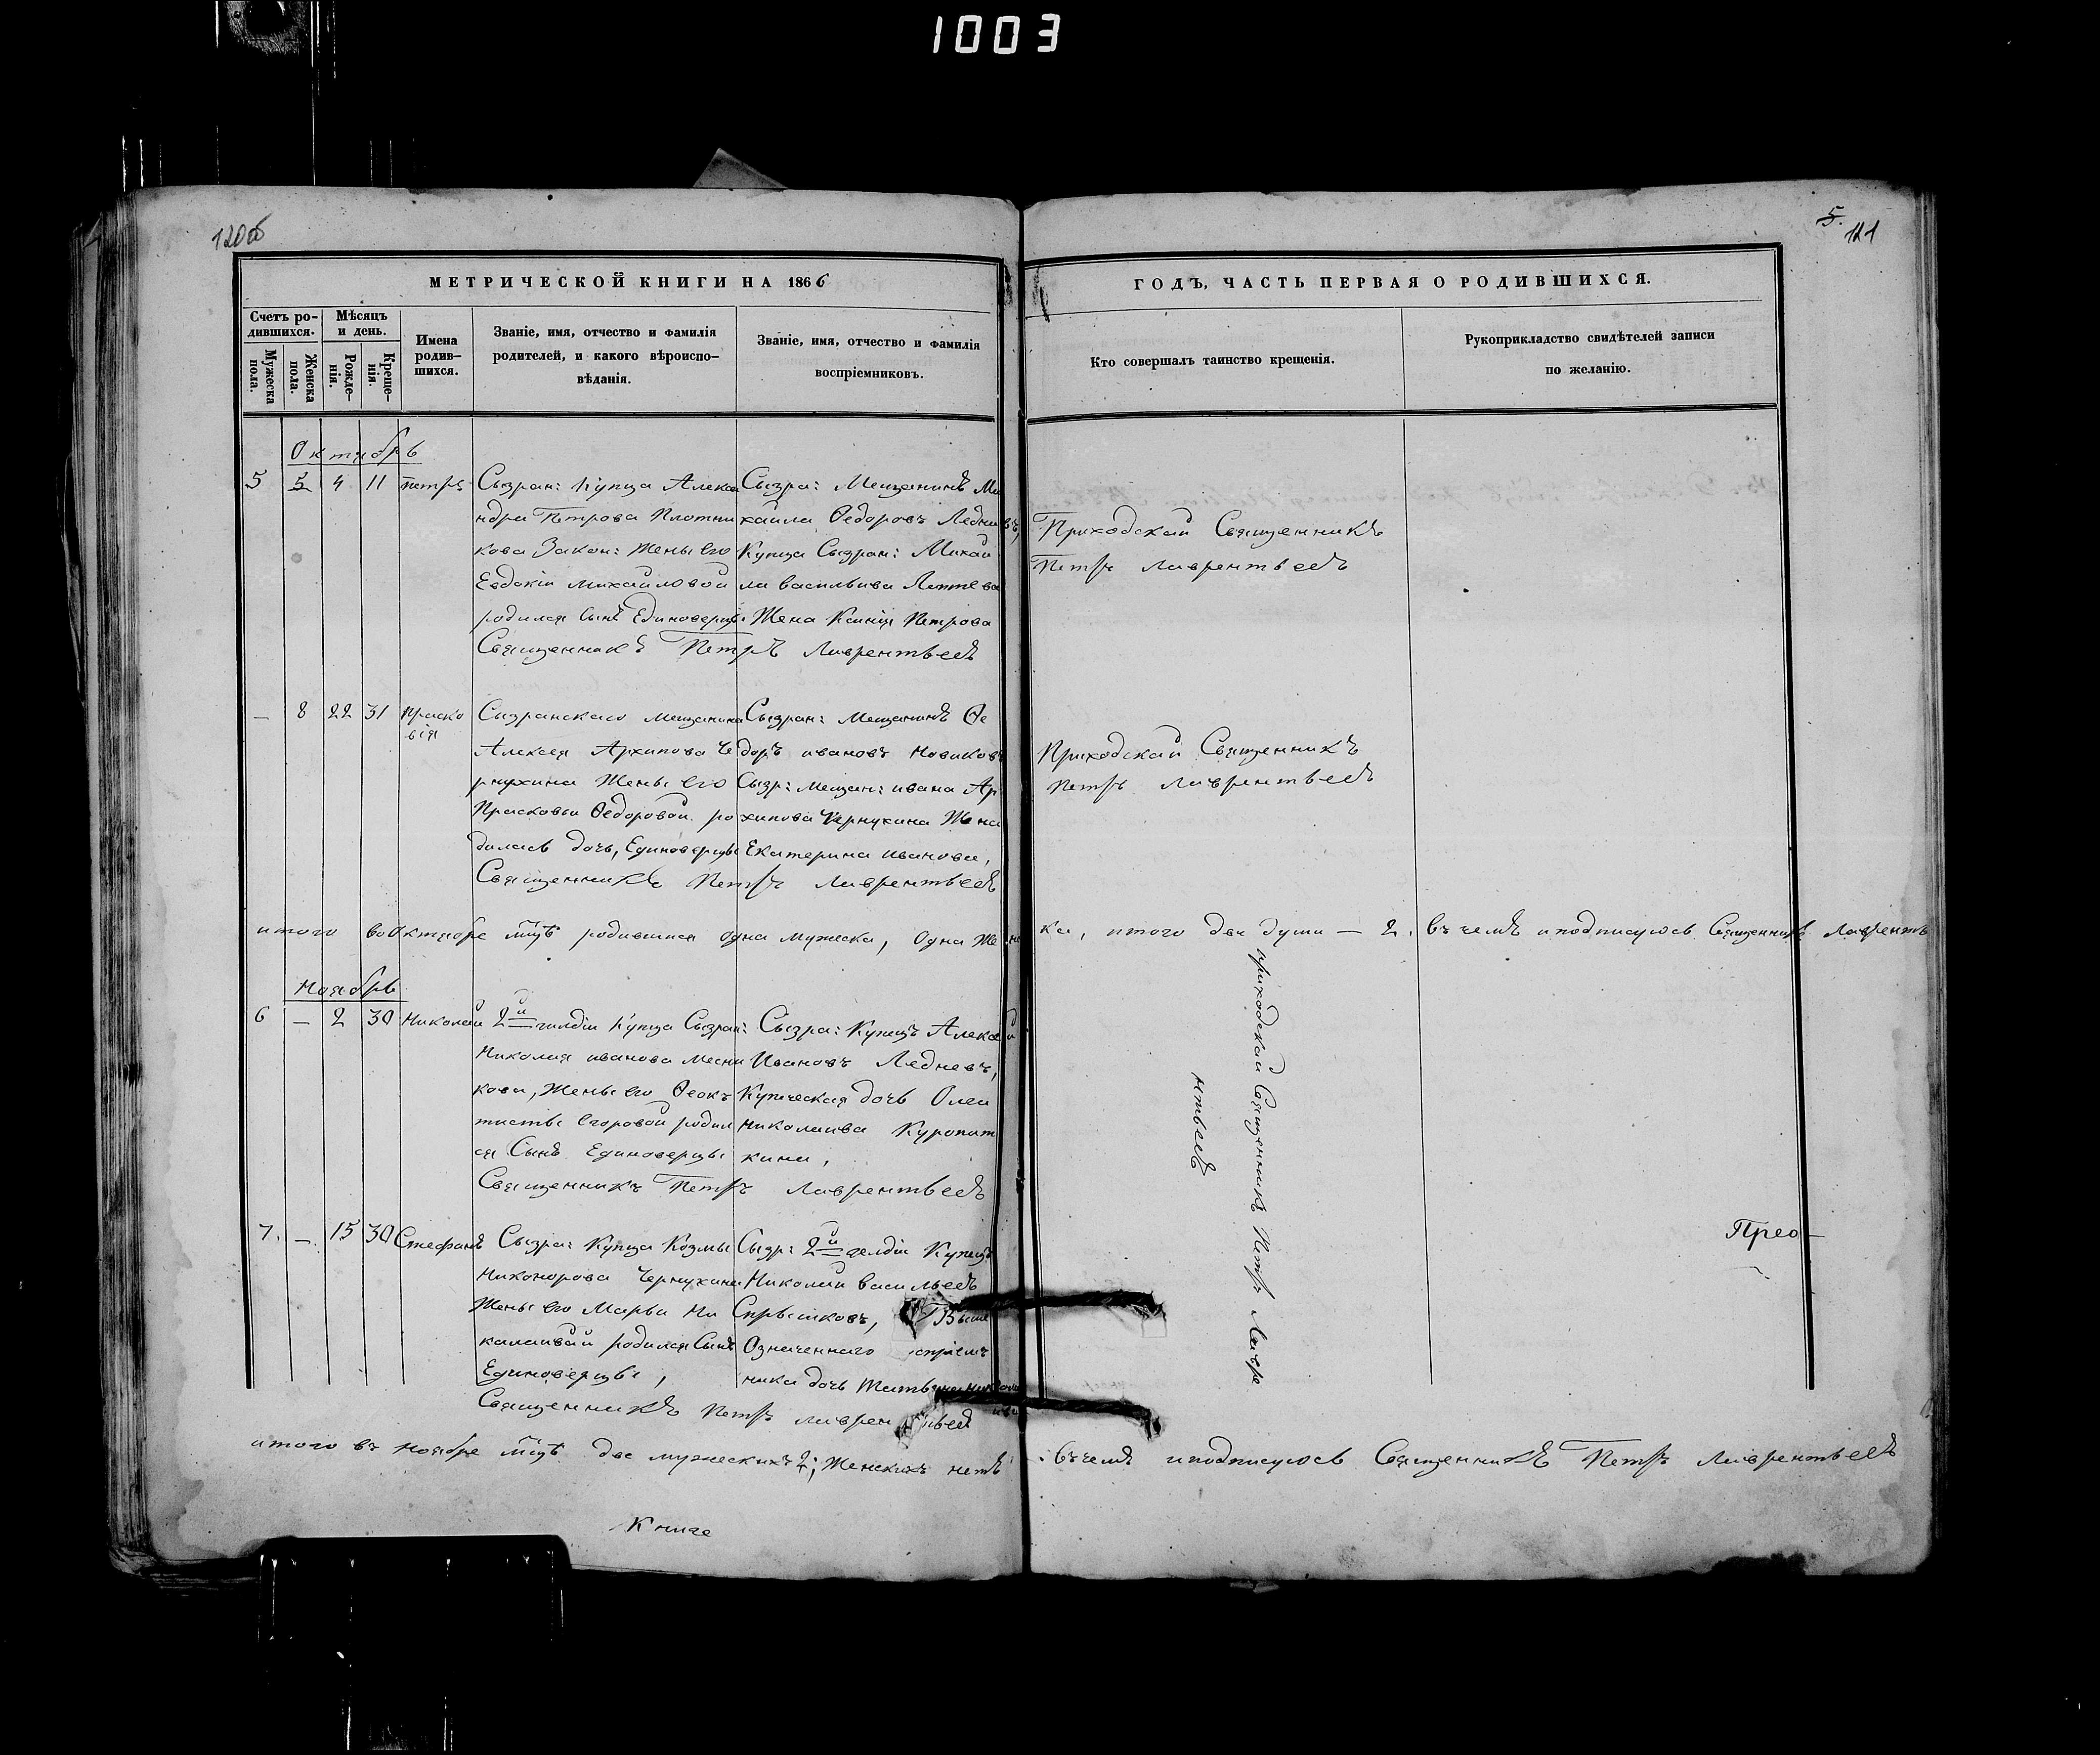 1003
120об
5.
121
МЕТРИЧЕСКОЙ КНИГИ НА 1866
ГОДЪ, ЧАСТЬ ПЕРВАЯ О РОДИВШИХСЯ.
Счетъ ро-
дившихся.
Мужеска
пола.
Женска
пола.
Мѣсяцъ
и день.
Рожде-
нія.
Креще-
нія.
Имена
родив-
шихся.
Званіе, имя, отчество и фамилія
родителей, и какого вѣроиспо-
вѣданія.
Званіе, имя, отчество и фамилія
воспріемниковъ.
Кто совершалъ таинство крещенія.
Рукоприкладство свидѣтелей записи
по желанію.
Октябрь
5 5 4 11 петръ
Сызран: Купца Алекса
ндра Петрова Плотни
кова Закон: Жены его
Евдокіи михайловой
родился сынъ Единоверцы
Сызра: Мещанинъ Ми
хаила Ѳедоровъ Ледневъ,
Купца Сызран: Михаи
ла васильива
Жена Ксинія Петрова
Священникъ Петръ Лаврентьевъ
Приходскай Священникъ
Петръ лаврентьевъ
— 8 22 31 праско
вія
Сызранскаго мещанина
Алексея Архипова Че
рнухина Жены его
Прасковьи Ѳедоровой ро
дилась дочь, Единоверцы
Сызран: Мещанинъ Ѳе
доръ ивановъ Новиковъ
Сызр: мещан: ивана Ар
хипова Чернухина Жена
Екатерина иванова,
Священникъ Петръ Лаврентьевъ
Приходскай Священникъ
петръ лаврентьевъ
итого во Октябре мцѣ родившихся одна мужеска, Одна Женска, итого две души — 2. въ чемъ и подписуюсь Священникъ Лаврентъ
приходскай Священникъ Петръ Лавре
нтьевъ
Ноябрь
6 — 2 30 Николай
2й гилдіи Купца Сызран:
Николая иванова месни
кова, Жены его Ѳеок
тисты Егоровой родил
ся Сынъ Единоверцы
Сызра: Купецъ Алексей
Ивановъ Ледневъ,
Купеческая дочь
николаива Куропат
кина,
Священникъ Петръ Лаврентьевъ
7. — 15 30 Стефанъ
Сызра: Купца Козмы
Никонорова Чернухина
Жены его Марьи Ни
калаивай родился Сынъ
Единоверцы,
Сызр: 2й гелдіи Купецъ
Николай васильевъ
Выше
Означеннаго
ника дочь
Священникъ Петръ лаврентьевъ
Прео—
итого въ ноябре мцѣ две мужескихъ 2; Женскихъ нетъ. въ чемъ и подписуюсь Священникъ Петръ Лаврентьевъ
Книге